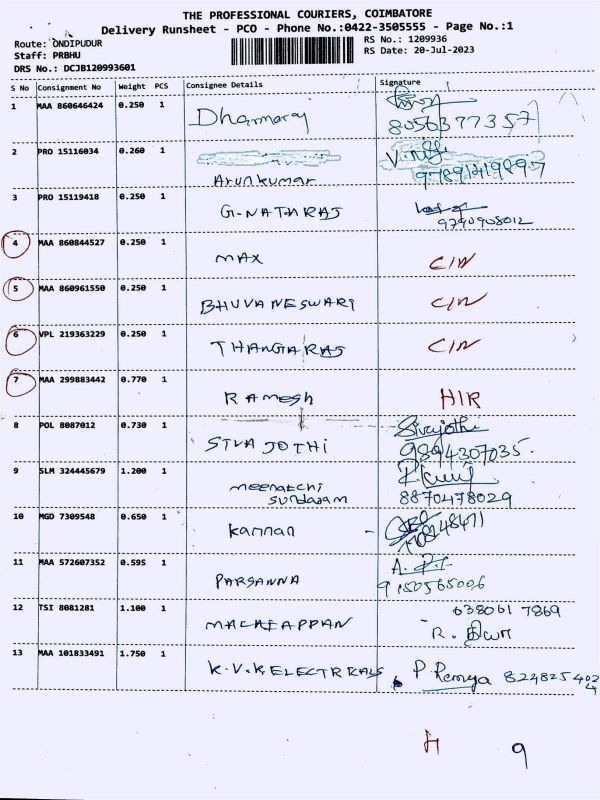 THE PROFESSIONAL COURIERS, COIMBATORE
Delivery Runsheet - PCO - Phone No.:0422-3505555 - Page No.:1
Route: ONDIPUDUR
RS No.: 1209936
Staff: PRBHU
RS Date: 20-Jul-2023
DRS No.: DCJB120993601
S No Consignment No Weight PCS Consignee Details Signature
1 MAA 860646424 0.250 1 Dharmaraj
8056377357
2 PRO 15116034 0.260 1
Arunkumar
3 PRO 15119418 0.250 1 G.NATARAJ
9790908012
4 MAA 860844527 0.250 1 MAX CIN
5 MAA 860961550 0.250 1 BHUVANESWARI CIN
6 VPL 219363229 0.250 1 THANGARAJ CIN
7 MAA 299883442 0.770 1 Ramesh HIR
8 POL 8087012 0.730 1 SIVAJOTHI Sivajothi
9894307035.
9 SLM 324445679 1.200 1 meenatchi
sundaram 8870478029
10 MGD 7309548 0.650 1 Kannan
11 MAA 572607352 0.595 1 PARSANNA
9150565006
12 TSI 8081281 1.100 1 MALAIAPPAN 6380617869
13 MAA 101833491 1.750 1 K.V.K ELECTRRALS P. Remya
9